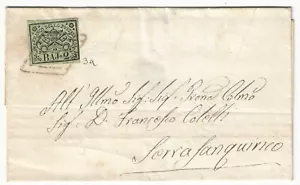 BAJ 2
3a
All' Illmo Sig. Sig. Prone Colmo
Sig. D. Francesco Coletti
Serrasanquirico